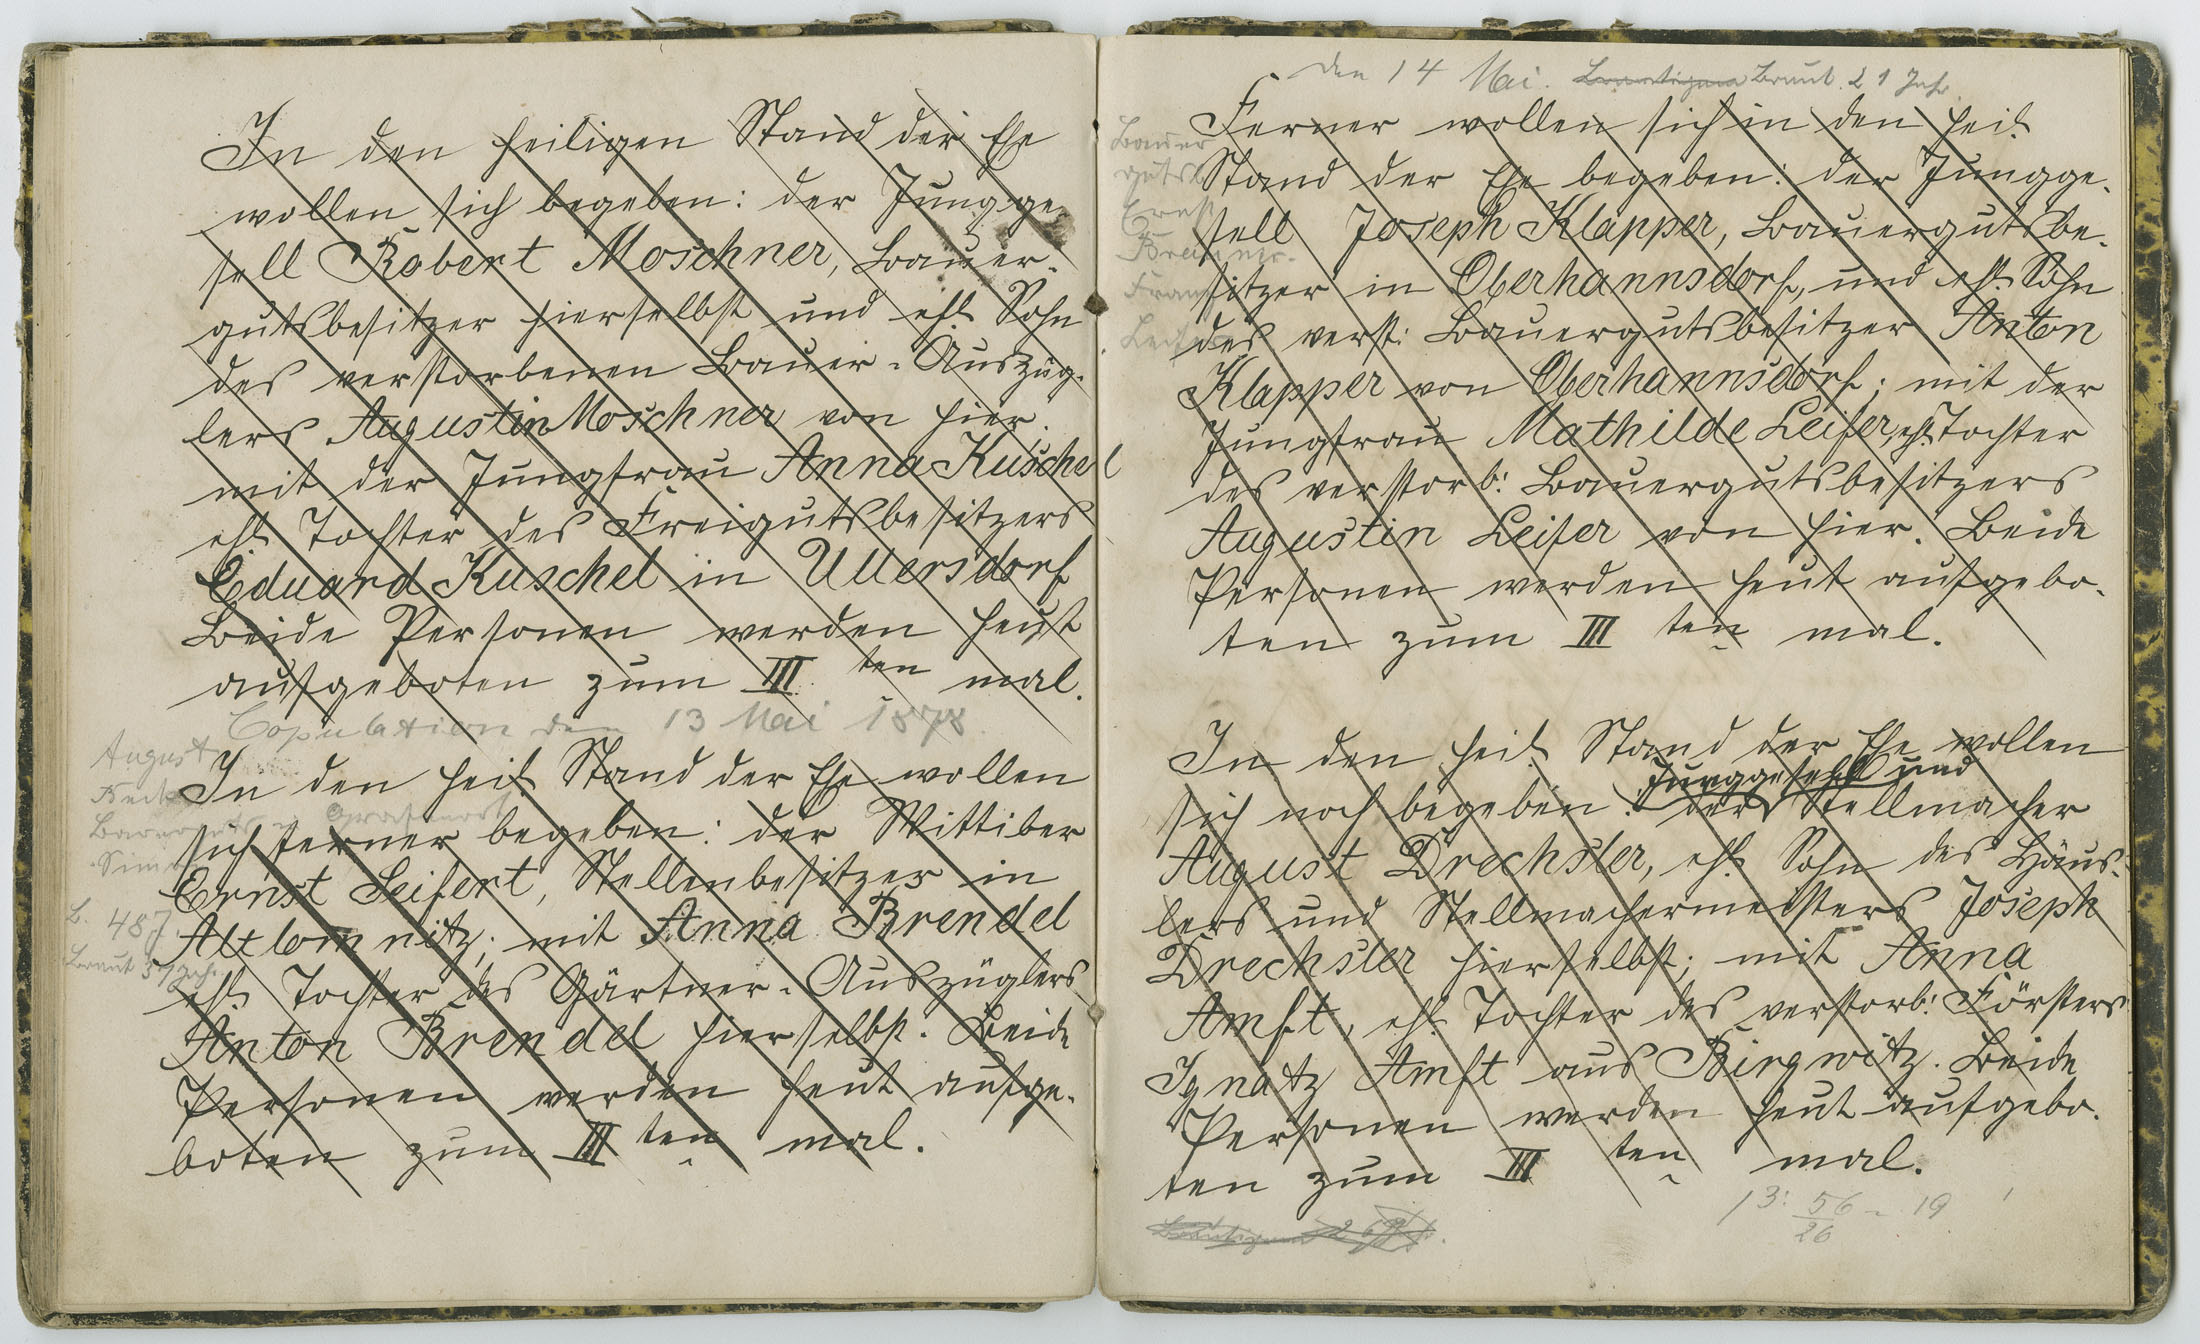 In den heiligen Stand der Ehe
wollen sich begeben: der Jungge-
sell Robert Moschner, Bauer-
gutsbesitzer hierselbst und ehl. Sohn
des verstorbenen Bauer-Auszüg-
lers Augustin Moschner von hier.
mit der Jungfrau Anna Kuschel
ehl. Tochter des Freigutsbesitzers
Eduard Kuschel in Ullersdorf
Beide Personen werden heut
aufgeboten zum III ten mal.
Copulation den 13 Mai 1878.
August
In den heil. Stand der Ehe wollen
sich ferner begeben: der Wittiber
Ernst Seifert, Stellenbesitzer in
Altlomnitz; mit Anna Brendel
ehl. Tochter des Gärtner-Auszüglers
Anton Brendel hierselbst. Beide
Personen werden heut aufge-
boten zum III ten mal.
B. 48 J.
Braut 37 Jah.
den 14 Mai. Bräutigam Braut 21 Jah
Ferner wollen sich in den heil.
Stand der Ehe begeben: der Jungge-
sell Joseph Klapper, Bauergutsbe-
sitzer in Oberhannsdorf, und ehl. Sohn
des verst: Bauergutsbesitzer Anton
Klapper von Oberhannsdorf; mit der
Jungfrau Mathilde Leifer, ehl. Tochter
des verstorb: Bauergutsbesitzers
Augustin Leifer von hier. Beide
Personen werden heut aufgebo-
ten zum III ten mal.
Bauer
gutsb
Ernst
Franz
In den heil. Stand der Ehe wollen
sich noch begeben: der Junggesell und Stellmacher
August Drechsler, ehl. Sohn des Häus-
lers und Stellmachermeisters Joseph
Drechsler hierselbst; mit Anna
Amft, ehl. Tochter des verstorb: Försters
Ignatz Amft aus Birgwitz. Beide
Personen werden heut aufgebo-
ten zum III ten mal.
Bräutigam 26
13: 56 - 19
26